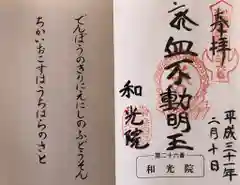 でんぽうのきりにえにしのふどうそん
ちかいおこすはうちはらのさと
奉拝
不動明王
和光院
平成三十一年
二月十日
第二十六番
和光院